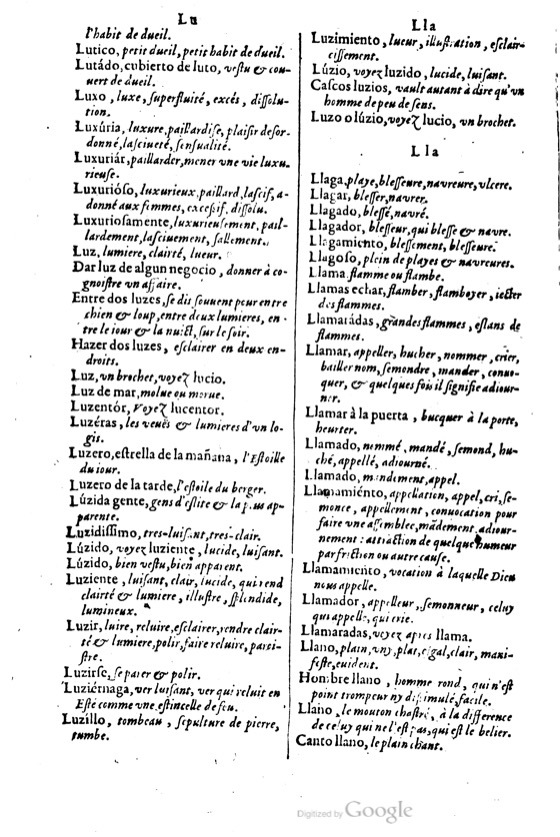 Lu
l'habit de dueil.
Lutico, petit dueil, petit habit de dueil.
Lutádo, cubierto de luto, vestu & cou-
uert de dueil.
Luxo, luxe, superfluité, excés, dissolu-
tion.
Luxúria, luxure, paillardise, plaisir desor-
donné, lasciueté, sensualité.
Luxuriár, paillarder, mener vne vie luxu-
rieuse.
Luxurióso, luxurieux, paillard, lascif, a-
donné aux femmes, excessif, dissolu.
Luxuriosamente, luxurieusement, pail-
lardement, lasciuement, sallement.
Luz, lumiere, clairté, lueur.
Dar luz de algun negocio, donner à co-
gnoistre vn affaire.
Entre dos luzes, se dit souuent pour entre
chien & loup, entre deux lumieres, en-
tre le iour & la nuict, sur le soir.
Hazer dos luzes, esclairer en deux en-
droits.
Luz, vn brochet, voyez lucio.
Luz de mar, molue ou morue.
Luzentór, voyez lucentor.
Luzéras, les veuës & lumieres d'vn lo-
gis.
Luzero, estrella de la mañana, l'Estoille
du iour.
Luzero de la tarde, l'estoile du berger.
Lúzida gente, gens d'eslite & la plus ap-
parente.
Luzidissimo, tres-luisant, tres-clair.
Lúzido, voyez luziente, lucide, luisant.
Lúzido, bien vestu, bien apparent.
Luziente, luisant, clair, lucide, qui rend
clairté & lumiere, illustre, splendide,
lumineux.
Luzir, luire, reluire, esclairer, rendre clair-
té & lumiere, polir, faire reluire, paroi-
stre.
Luzirse, se parer & polir.
Luziérnaga, ver luisant, ver qui reluit en
Esté comme vne estincelle de feu.
Luzillo, tombeau, sepulture de pierre,
tumbe.
Lla
Luzimiento, lueur, illustration, esclair-
cissement.
Lúzio, voyez luzido, lucide, luisant.
Cascos luzios, vault autant à dire qu'vn
homme de peu de sens.
Luzo o lúzio, voyez lucio, vn brochet.
Lla
Llaga, playe, blesseure, navreure, vlcere.
Llagar, blesser, navrer.
Llagado, blessé, navré.
Llagador, blesseur, qui blesse & navre.
Llagamiento, blessement, blesseure.
Llagoso, plein de playes & navreures.
Llama, flamme ou flambe.
Llamas echar, flamber, flamboyer, iecter
des flammes.
Llamarádas, grandes flammes, eslans de
flammes.
Llamar, appeller, hucher, nommer, crier,
bailler nom, semondre, mander, conuo-
quer, & quelques fois il signifie adiour-
ner.
Llamar à la puerta, bucquer à la porte,
heurter.
Llamado, nommé, mandé, semond, hu-
ché, appellé, adiourné.
Llamado, mandement, appel.
Llamamiénto, appellation, appel, cri, se-
monce, appellement, conuocation pour
faire vne assemblee, mãdement, adiour-
nement: attraction de quelque humeur
par friction ou autre cause.
Llamamiento, vocation à laquelle Dieu
nous appelle.
Llamador, appelleur, semonneur, celuy
qui appelle, qui crie.
Llamaradas, voyez apres llama.
Llano, plain, vny, plat, egal, clair, mani-
feste, euident.
Hombre llano, homme rond, qui n'est
point trompeur ny dissimulé, facile.
Llano, le mouton chastré, à la difference
de celuy qui ne l'est pas, qui est le belier.
Canto llano, le plain chant.
Digitized by Google